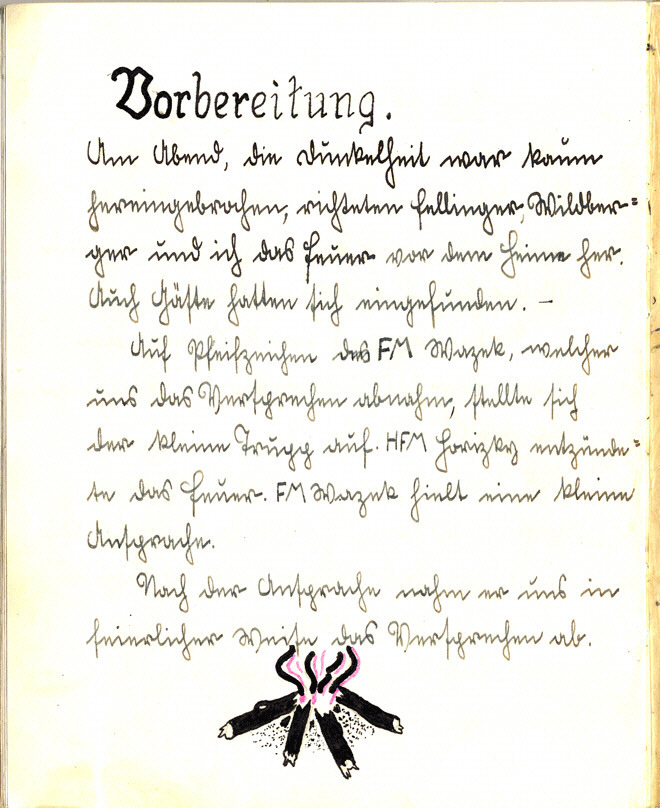 Vorbereitung.
Am Abend, die Dunkelheit war kaum
hereingebrochen, richteten Fellinger, Wildber=
ger und ich das Feuer vor dem Heime her.
Auch Gäste hatten sich eingefunden. –
Auf Pfeifzeichen des FM Wazek, welcher
uns das Versprechen abnahm, stellte sich
der kleine Trupp auf. HFM Horizky entzünde=
te das Feuer. FM Wazek hielt eine kleine
Ansprache.
Nach der Ansprache nahm er uns in
feierlicher Weise das Versprechen ab.